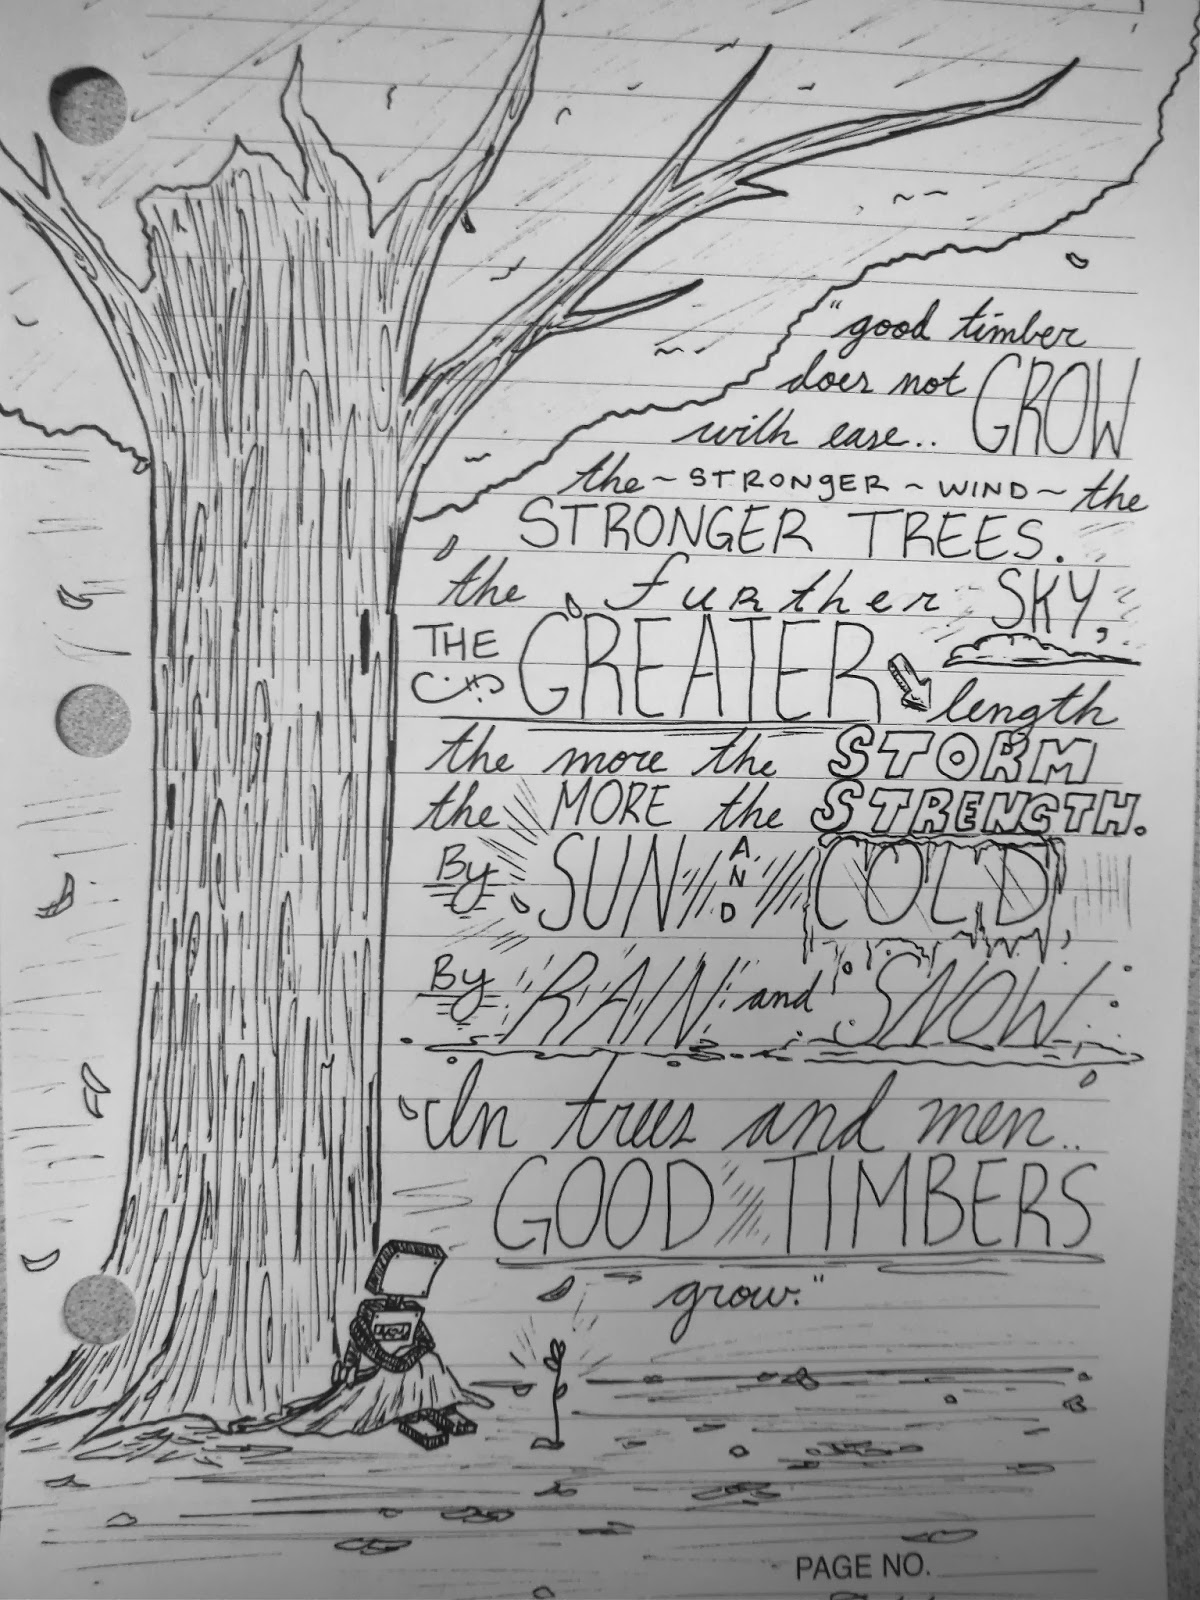 "good timber
does not GROW
with ease..
the ~ STRONGER ~ WIND ~ the
STRONGER TREES.
the further SKY,
THE GREATER length
the more the STORM
the MORE the STRENGTH.
By SUN AND COLD,
By RAIN and SNOW
In trees and men..
GOOD TIMBERS
grow."
PAGE NO.